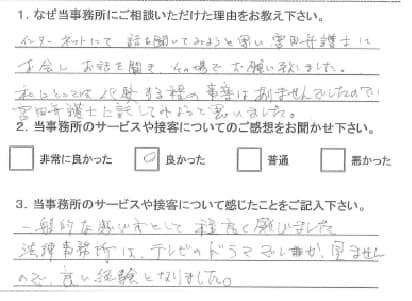 1. なぜ当事務所にご相談いただけた理由をお教え下さい。
インターネットにて話を聞いてみようと思い宮田弁護士に
お会しお話を聞き、その場でお願い致しました。
私にとっては 程の事案はありませんでしたので
宮田弁護士に託してみようと思いました。
2. 当事務所のサービスや接客についてのご感想をお聞かせ下さい。
非常に良かった 良かった 普通 悪かった
3. 当事務所のサービスや接客について感じたことをご記入下さい。
一般的な感じ方として 程良く感じました
法律事務所は、テレビのドラマでしか、見ません
ので、良い経験となりました。